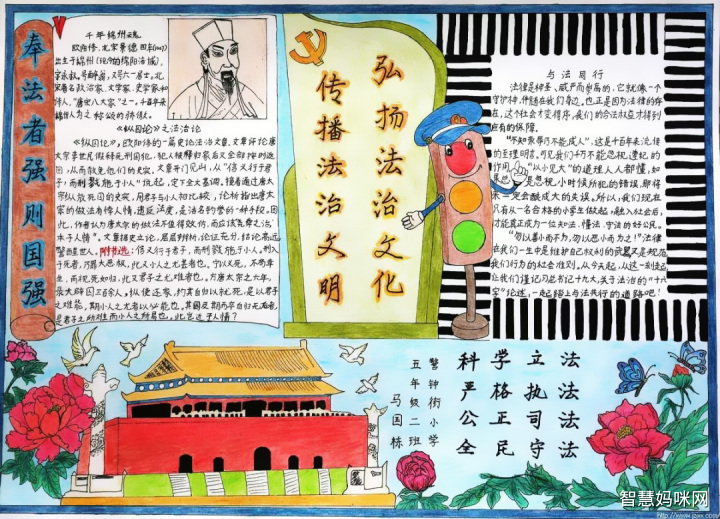 奉法者强则国强
千年绵州魂
欧阳修,北宋景德四年(1007)
出生于绵州(现今的绵阳涪城),
字永叔,号醉翁,又号六一居士。北
宋著名政治家、文学家、史学家和
诗人,"唐宋八大家"之一。千百年来
绵州人为之称颂的骄傲。
《纵囚论》之法治论
《纵囚论》,欧阳修的一篇史论法治文章,文章评论唐
太宗李世民假释死刑囚犯,犯人被释归家后又全部按时返
回,从而赦免他们的史实,文章开门见山,从"信义行于君
子,而刑戮施于小人"说起,定下全文基调。接着通过唐太
宗纵放死囚的史实,用君子与小人相比较,论析指出唐太
宗的做法有悖人情,违反法度,是沽名钓誉的一种手段,因
此,作者认为唐太宗的做法不值得效仿,而应该
本于人情"。文章援史立论,层层剖析,论证充分,结论高远
警世且世人。信义行于君子,而刑戮施于小人。刑入
于死者,乃罪大恶极,此又小人之尤甚者也。宁以义死,不苟幸
生,而视死如归,此又君子之尤难者也。方唐太宗之六年,
录大辟囚三百余人,纵使还家,约其自归以就死,是以君子
之难能,期小人之尤者以必能也。其囚及期而卒自归无后者,
是君子之所难而小人之所易也,此岂近于人情?
弘扬法治文化
传播法治文明
与法同行
法律是神圣、威严而崇高的,它就像一个
守护神,伴随在我们身边。也正是因为法律的存
在,这个社会才变得有序,我们的合法权益才得到
应有的保障。
"不知家带刀不能成人",这是十百年来流传
的至理明言,可见我们千万不能忽视遵纪的
作用。"从小见大"的道理人人都懂,如
忽视小时候所犯的错误,即将
来一定会酿成大的失误。所以,我们现在
只有从一名合格的小学生做起,融入社会后,
才能真正成为一位知法、懂法、守法的好公民。
"勿以善小而不为,勿以恶小而为之!"法律
在我们一生中是维护自己权利的武器又是规范
我们行为的社会准则。从今天起,从这一刻起
让我们谨记习总书记十九大,关于法治的"十六
字"论述,一起踏上与法同行的道路吧!
科学立法
严格执法
公正司法
全民守法
警钟街小学
五年级二班
马国栋
智慧妈咪网